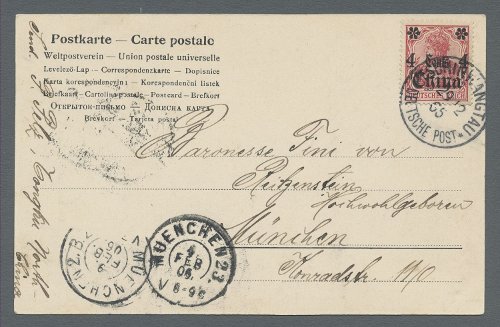 Postkarte – Carte postale
Weltpostverein – Union postale universelle
Levelező-Lap – Correspondenzkarte – Dopisnice
Karta korespondencyjna – Korespondenční lístek
Brefkaart – Cartolina postale – Postcard – Brefkort
Открытое письмо – Дописна карта
Brevkort – Tarjeta postal
4 Cents 4
China
TSCHINWANGTAU
DEUTSCHE POST
Baronesse Fini von
Reitzenstein
Hochwohlgeboren
München
Konradstr.
MUENCHEN 23.
FEB
06.
V 8-9
MUENCHEN 2. B.Z.
FEB
06
Tongku North
China